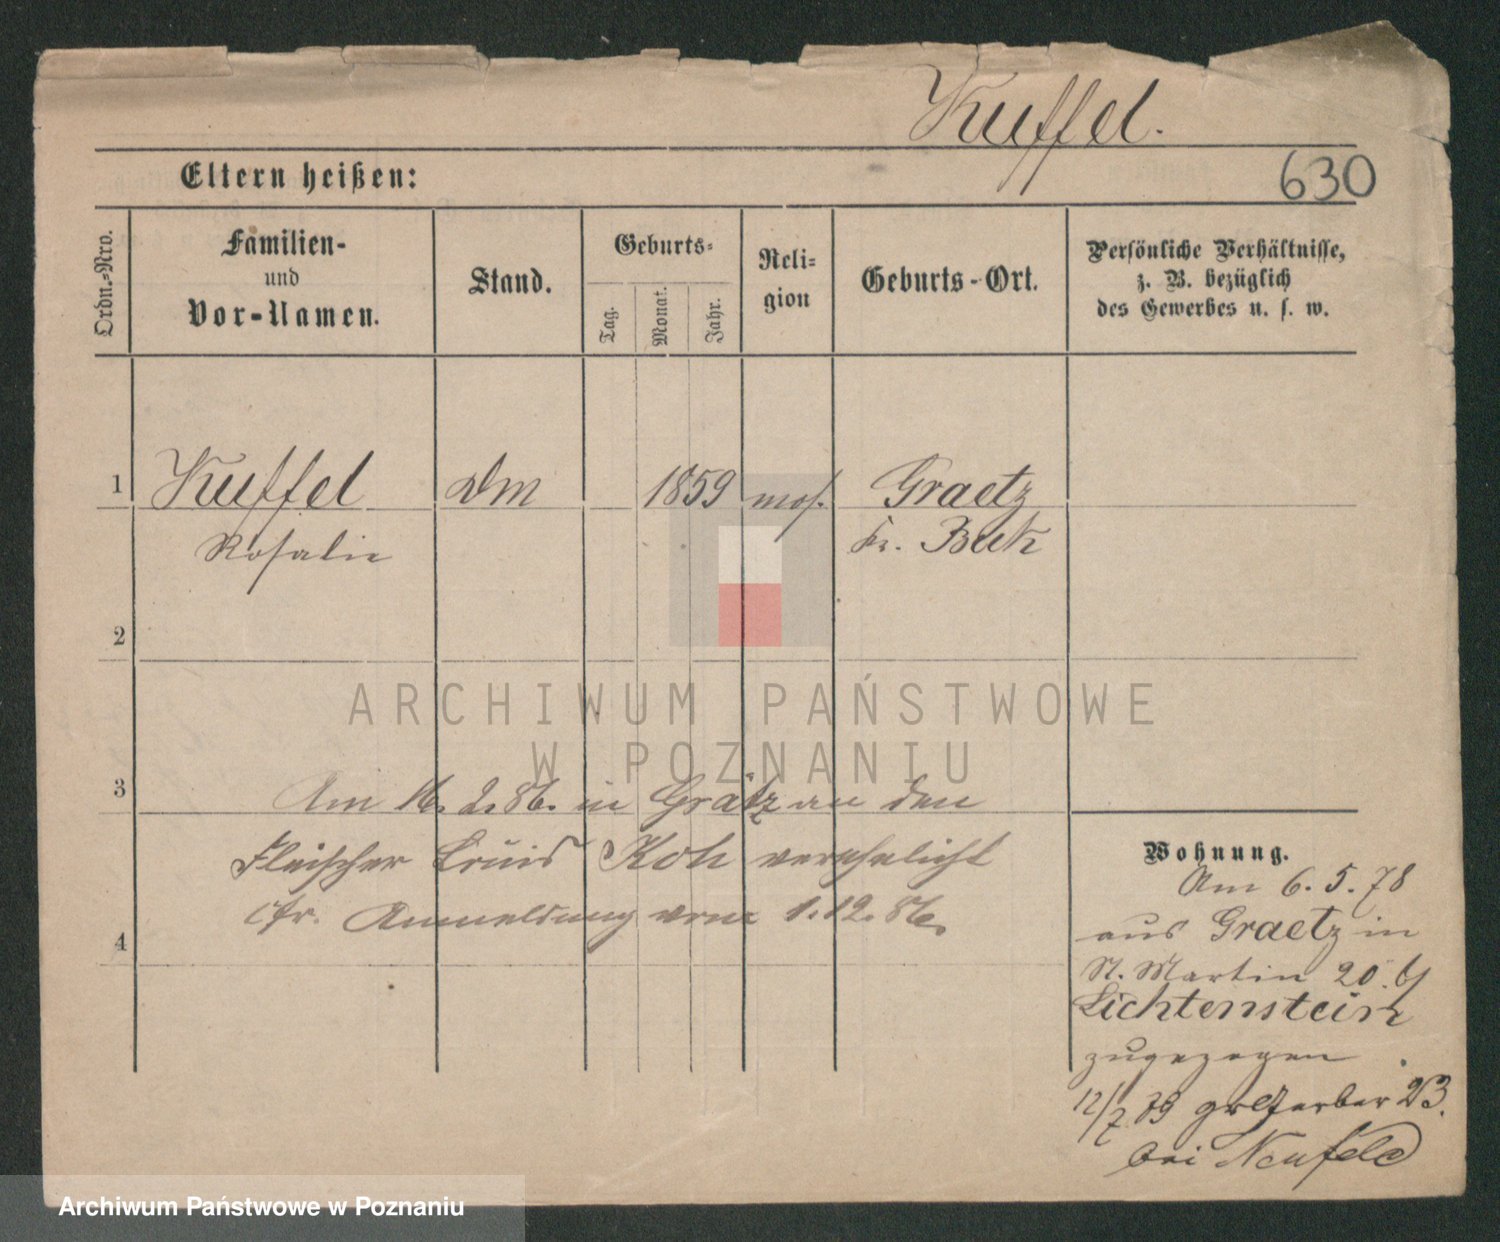 Kuffel.
Eltern heißen:
630
Ordn.-Nro.
Familien-
und
Vor-Namen.
Stand.
Geburts-
Tag.
Monat.
Jahr.
Reli-
gion
Geburts-Ort.
Persönliche Verhältnisse,
z. B. bezüglich
des Gewerbes u. s. w.
1
Kuffel
Dm
1859
mos.
Graetz
Rosalie
Kr. Buk
2
ARCHIWUM PAŃSTWOWE
W POZNANIU
3
Am 16. 2. 86. in Grätz an den
Fleischer Louis verehelicht
cfr. Anmeldung vom 1.12.86.
4
Wohnung.
Am 6. 5. 78
aus Graetz in
St. Martin 20. b/
Lichtenstein
zugezogen
12/7 79 gr Gerber 23.
bei Neufeld
Archiwum Państwowe w Poznaniu